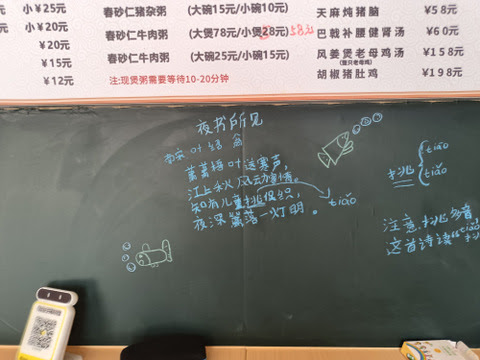 小￥25元
￥20元
￥20元
￥15元
￥12元
春砂仁猪杂粥 (大碗15元/小碗10元)
春砂仁牛肉粥 (大煲78元/小煲28元) 58元
春砂仁牛肉粥 (大碗25元/小碗15元)
注:现煲粥需要等待10-20分钟
天麻炖猪脑 ￥58元
巴戟补腰健肾汤 ￥60元
风姜煲老母鸡汤 ￥158元
(整只老母鸡)
胡椒猪肚鸡 ￥198元
夜书所见
南宋 叶绍翁
萧萧梧叶送寒声,
江上秋风动客情。
知有儿童挑促织,
夜深篱落一灯明。
tiǎo
挑
tiāo
tiǎo
注意,挑多音
这首诗读“tiǎo